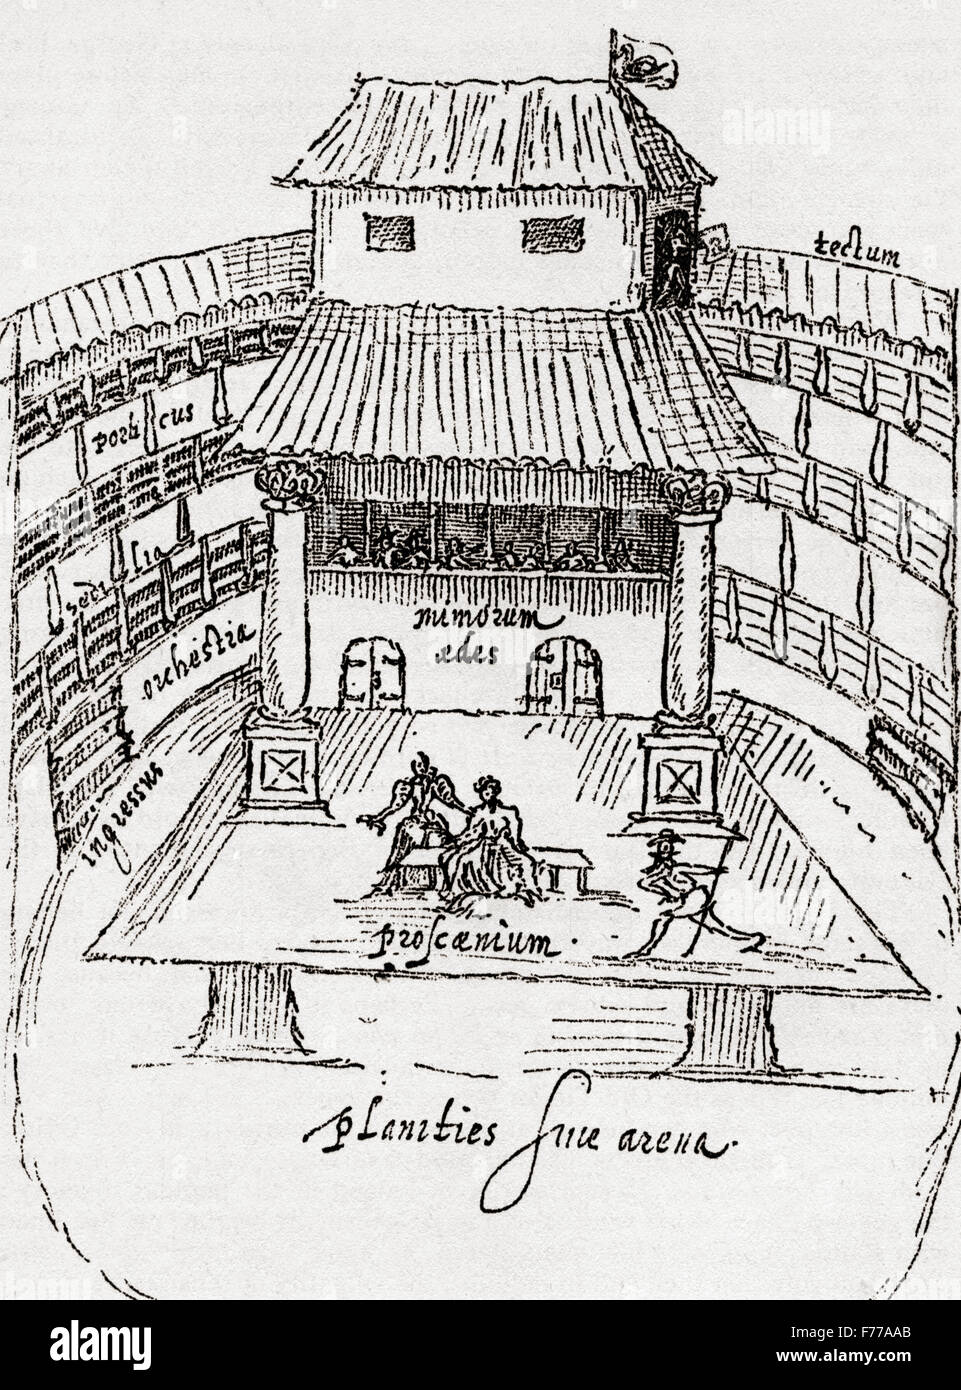 tectum
porticus
sedilia
orchestra
mimorum
ædes
ingressus
proscænium.
planities siue arena.
alamy
alamy
Image ID: F77AAB
www.alamy.com